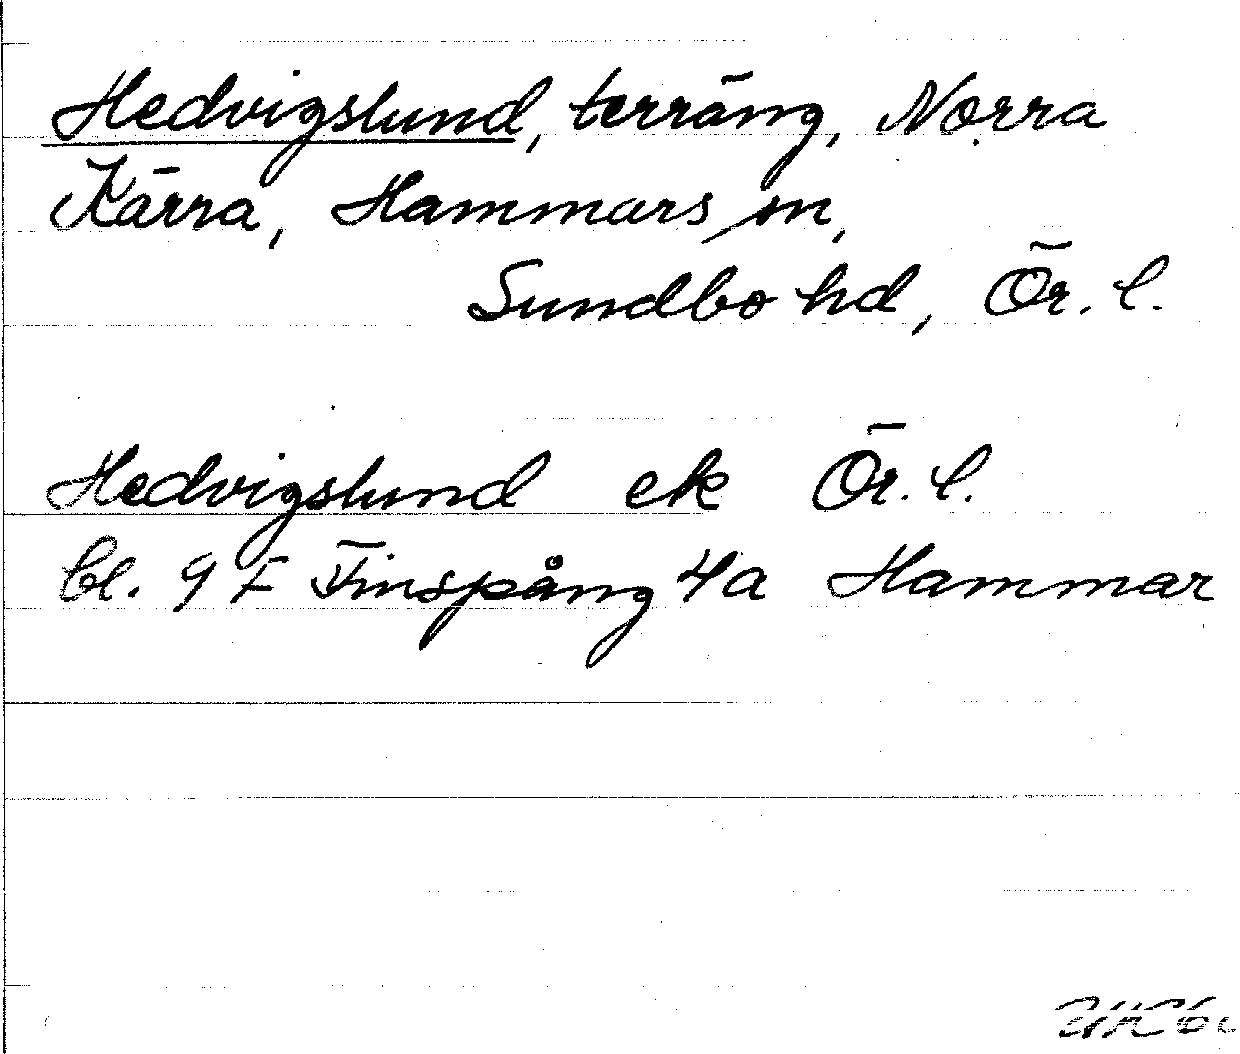 Hedvigslund, terräng, Norra
Kärra, Hammars sn,
Sundbo hd, Ör. l.
Hedvigslund ek Ör. l.
bl. 9 F Finspång 4a Hammar